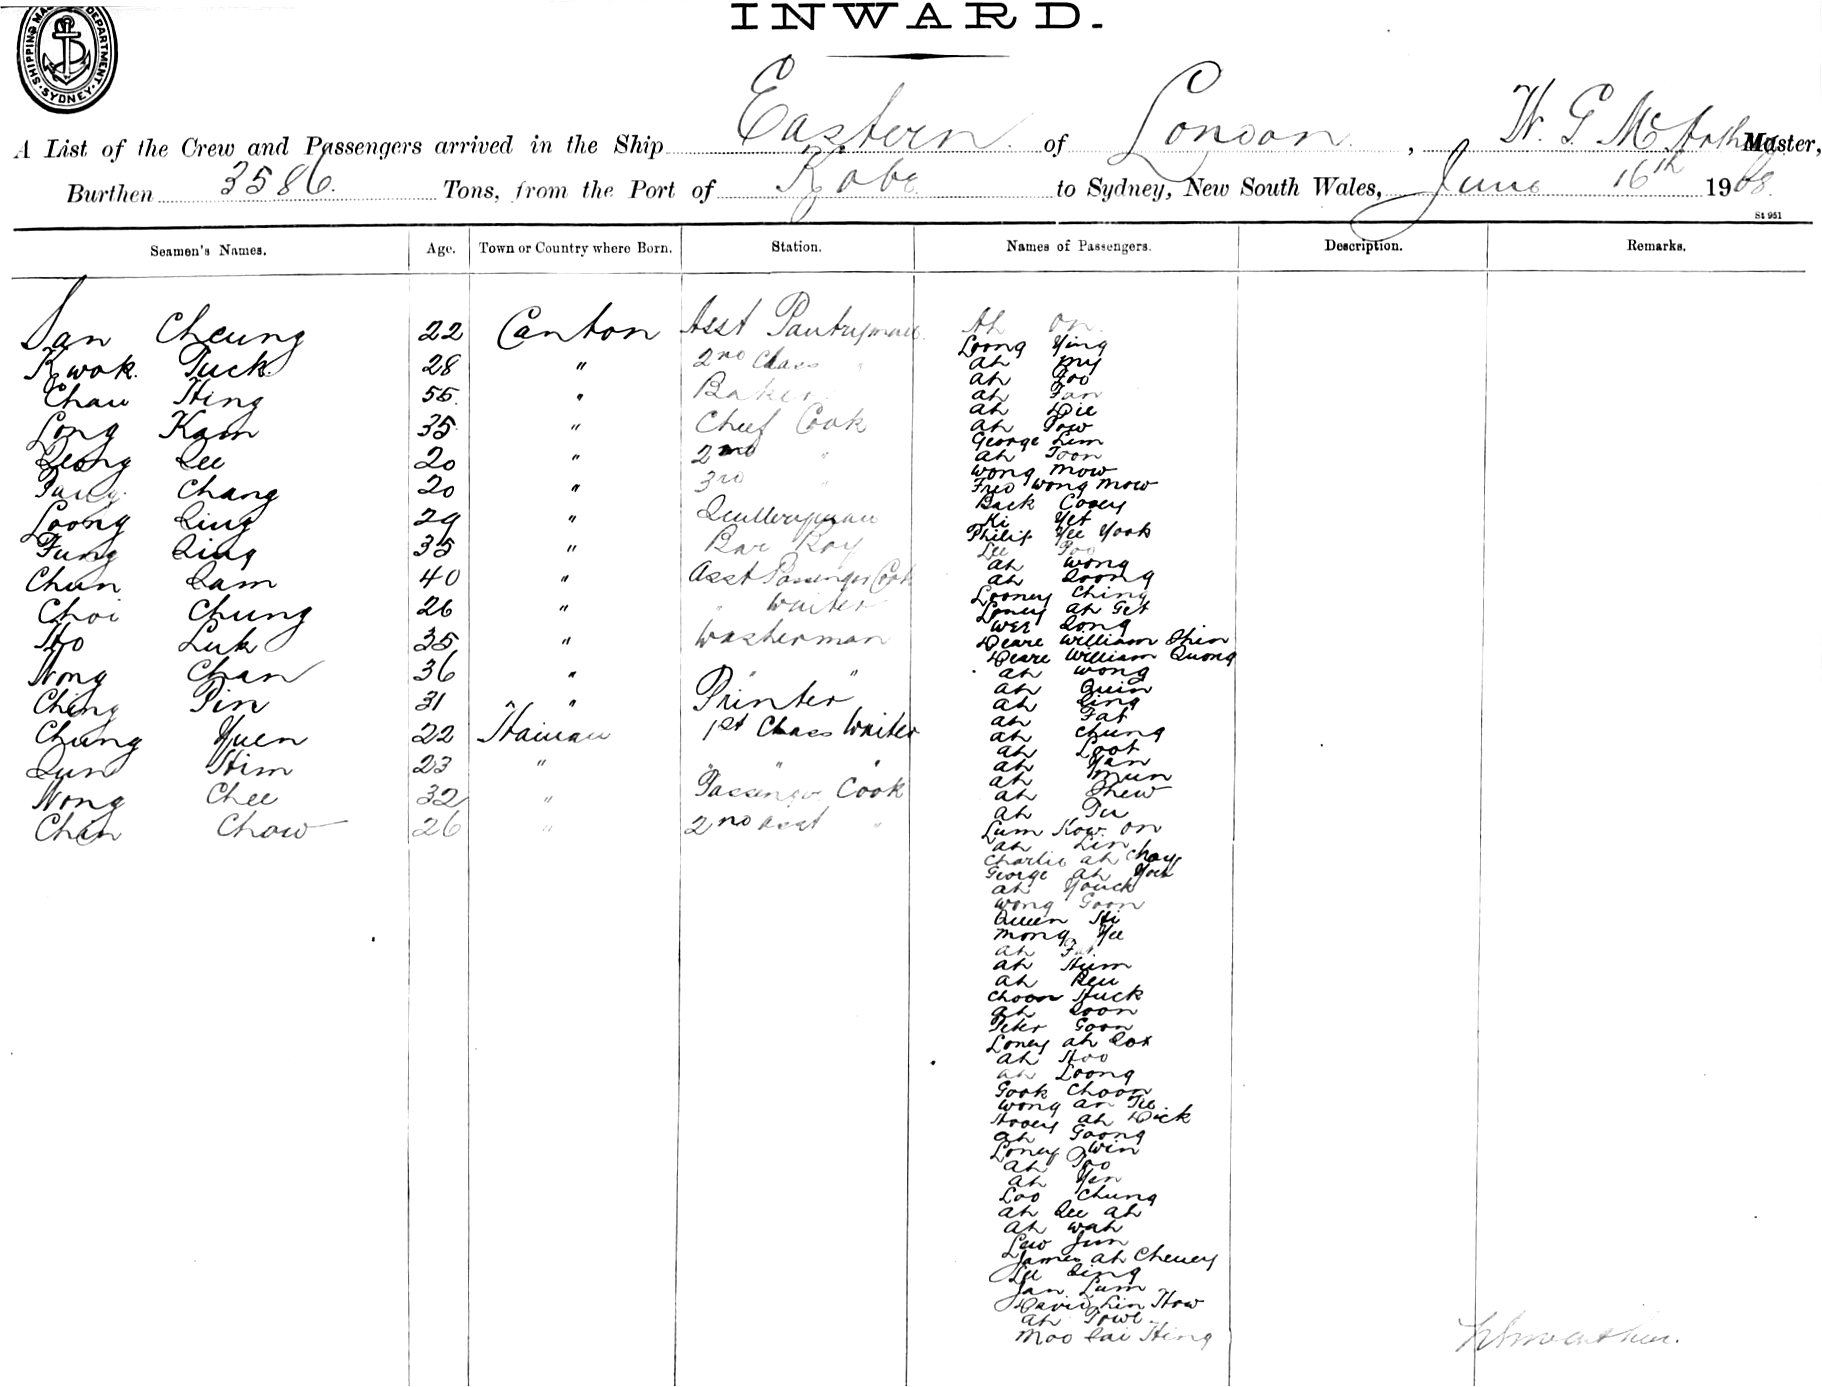 SHIPPING MASTER'S DEPARTMENT SYDNEY
INWARD.
A List of the Crew and Passengers arrived in the Ship Eastern of London, W. G. McArthur Master,
Burthen 3586. Tons, from the Port of Kobe to Sydney, New South Wales, June 16th 1908.
St 951
Seamen's Names. Age. Town or Country where Born. Station. Names of Passengers. Description. Remarks.
San Cheung 22 Canton Asst Pantryman
Kwok Puck 28 " 2nd Class "
Chau Hing 55 " Baker
Long Kam 35 " Chief Cook
Leong Lee 20 " 2nd "
Pang Chang 20 " 3rd "
Loong Sing 29 " Scullerymau
Fung Sing 35 " Bar Boy
Chun Sam 40 " Asst Passenger Cook
Choi Chung 26 " " Waiter
Ho Luk 35 " Washerman
Wong Chan 36 " " "
Ching Pin 31 " Printer
Chung Yuen 22 Hainan 1st Class Waiter
Sun Him 23 " " " "
Wong Chee 32 " Passenger Cook
Chan Chow 26 " 2nd Asst "
Ah On
Loong Ying
Ah My
Ah Foo
Ah Fan
Ah Die
Ah Pow
George Lim
Ah Toon
Wong Mow
Fred Wong Mow
Back Cooey
Ki Yet
Philip Yee York
Lee Foo
Ah Wong
Ah Loong
Looney Ching
Loney Ah Get
Wee Song
Deare William Shin
Deare William Quong
Ah Wong
Ah Quin
Ah Sing
Ah Fat
Ah Chung
Ah Loot
Ah Yan
Ah Mun
Ah Shew
Ah Tu
Lum Kow On
Ah Lin
Charlie Ah Choy
George Ah York
Ah Youck
Wong Goon
Queen Hi
Mong Yee
Ah Fat
Ah Hum
Ah Reu
Choon Huck
Ah Soon
Peter Goon
Loney Ah Sox
Ah Hoo
Ah Loong
Gook Choon
Wong An Tie
Hooey Ah Dick
Ah Goong
Loney Win
Ah Poo
Ah Yen
Loo Chung
Ah See Ah
Ah Wah
Lew Jun
James Ah Cheuey
Lee Sing
Jan Lum
David Lin How
Ah Powe
Moo Sai Hing